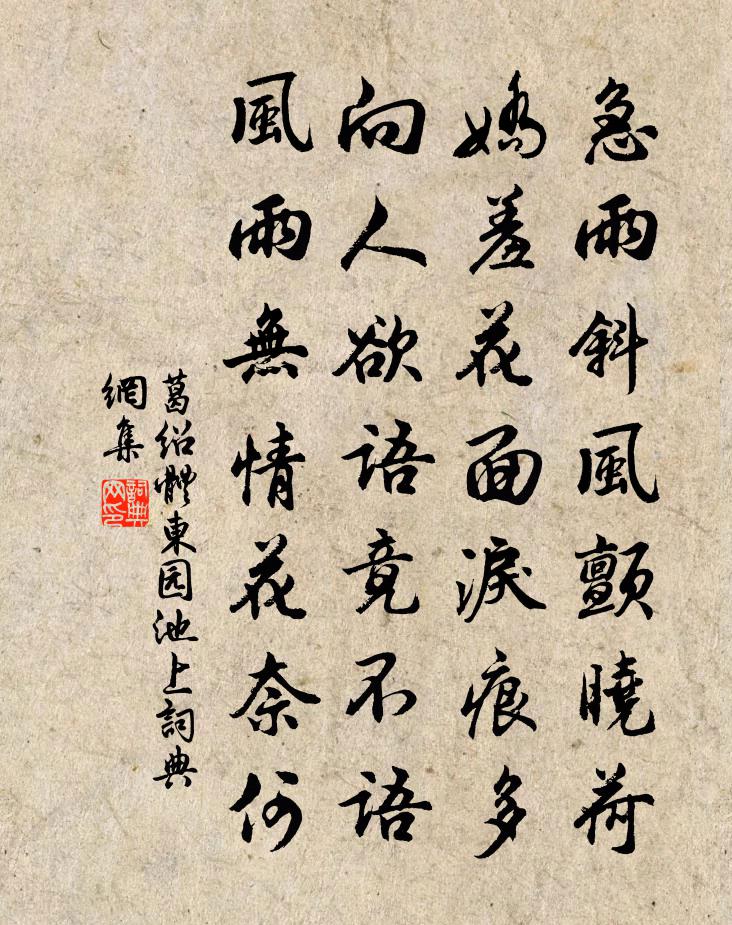 急雨斜風顫曉荷
嬌羞花面淚痕多
向人欲語竟不語
風雨無情花奈何
葛绍體東园池上詞典
網集
詞典
网印